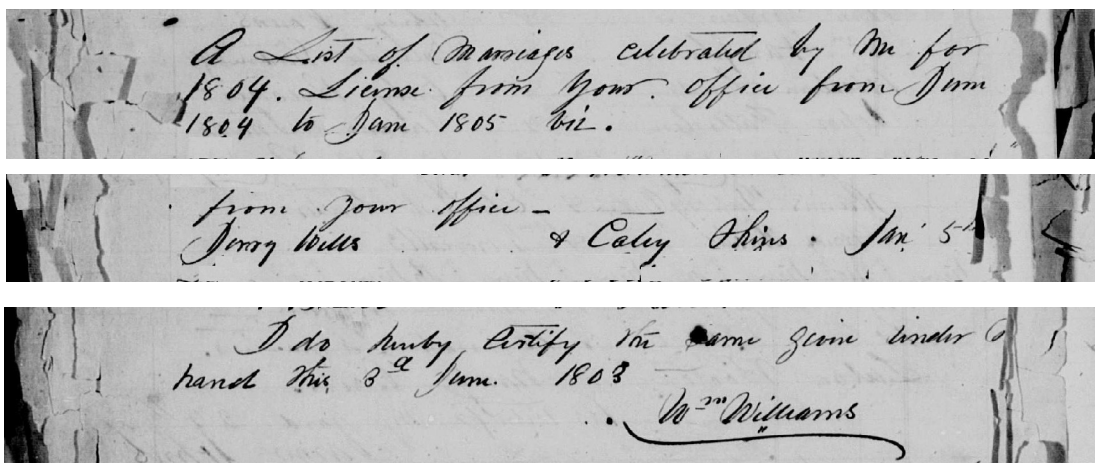 A List of Marriages celebrated by Me for
1804. License from your office from Jum
1804 to Jam 1805 viz.
from your office -
Henry Wells & Catey Skins. Jan 5th
I do hereby Certify the same given under
hand this 3d June. 1803
Wm Williams